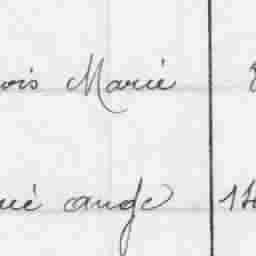 ois Marié
ué ange 14